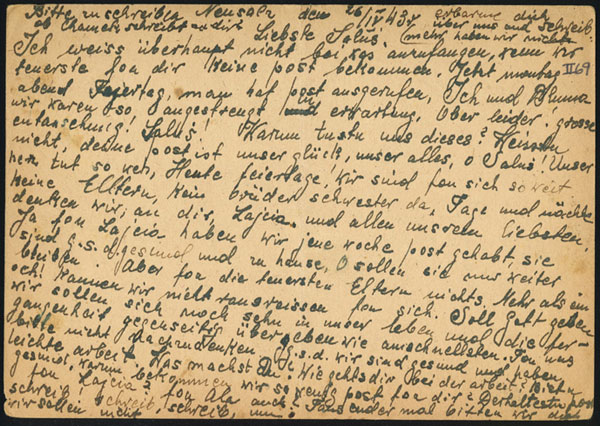 Bitte zu schreiben Neusalz den 26/IV 43 J. erbarme dich
ob Chamek schreibt zu dir Liebste Salus! über uns und schreib
mehr, haben wir nichts
Ich weiss überhaupt nicht bei was anzufangen, wenn wir
teuerste fon dir keine post bekommen. Jetzt montag
II69
abend Feiertag, man hat post ausgerufen, Ich und Bluma
wir waren so angestrengt in erwartung. Aber leider grosse
entäuschung! Salus! Warum tustu uns dieses? Weisstu
nicht, deine post ist unser glück, unser alles, o Salus! Unser
herz tut so weh, Heute feiertage, wir sind fon sich so weit
keine Eltern, kein brüder schwester da, Tage und nächte
denken wir, an dir, Lajcia, und allen unseren liebsten,
Ja fon Lajcia haben wir jene woche post gehabt, sie
sind g.s.d. gesund und zu hause, O sollen sie nur weiter
bleiben Aber fon die teuersten Eltern nichts. Mehr als ein
och! kannen wir nicht rausreissen fon sich. Soll Gott geben
wir sollen sich noch sehn in unser leben und die fer-
gangenhait gegenseitig übergeben wie amschnellsten. Fon uns
bitte nicht nachzudenken g.s.d. wir sind gesund und haben
leichte arbeit. Was machst du? Wie gehts dir bei der arbeit? Bistu
gesund, warum bekommen wir so wenig post fon dir? Derhaltestu post
fon Lajcia? fon Ala auch? Tausender mal bitten wir dich
schreib! schreib, schreib, nur!
wir sollen nicht